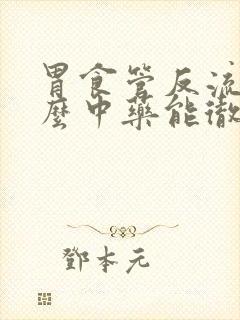 胃食管反流
麼中藥能徹
鄧本元